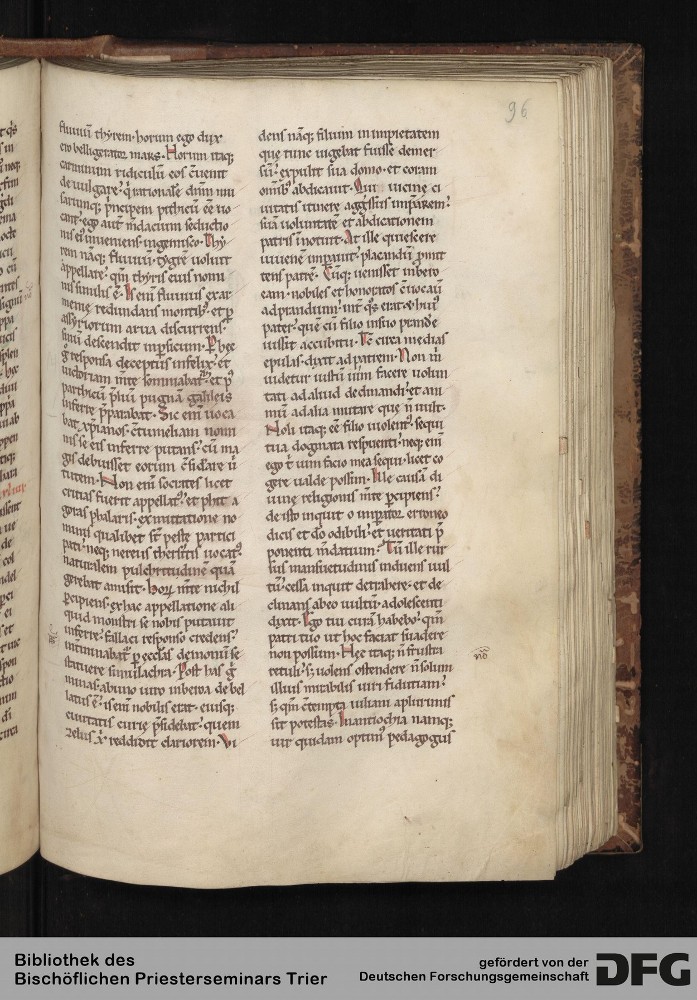 96
fluuiū thyrem· horum ego dux
ero belligerator mars· Horum itaq;
carminum ridiculū eos cūenit
de uulgare· q̇ rationale dn̄m mu
sarumq; p̄ncipem pithicū eē uo
cant· ego aut̄ m̄dacium seductio
nis ei᷒ inueniens· ingemisco· Thy
rem nāq; fluuiū· tygrē uoluit
appellare· qm̄ thyris eius nomi
nis similis ē· Is eni fluuius ex ar
menie redundans montib᷒· et ꝑ
assyriorum arua discurrens·
sinū descendit in persicum· P hęc
g̊ responsa deceptus infelix· et
uictoriam m̄te somniabat᷒· et p᷒
parthicū p̄liū pugnā galileis
inferre p̄parabat· Sic eni uoca
bat xp̄ianos· c̄tumeliam nomi
nis se eis inferre putans· cū ma
gis debuisset eorum c̄siderare ù
tutem· Non eni socrates licet
critias fuerit appellat᷒· et phit a
goras phalaris· ex mutatione no
minis qualibet st̄ peste partici
pati· neq; nereus thersitis uocat᷒·
naturalem pulchritudinē quā
gerebat amisit· Hoꝝ m̄te nichil
ꝑcipiens· ex hac appellatione ali
quid monstri se nobis putauit
inferre· fallaci responso credens·
intminabat᷒ ꝑ ecclās demonū se
statuere simulachra· Post has g̊
minas· ab uno uiro in beroa debel
latus ē· is eni nobilis erat· eiusq;
ciuitatis curię p̄sidebat· quem
zelus x̄ reddidit clariorem· Vi
dens nāq; filium in impietatem
que tunc uigebat fuisse demer
sū· expulit sua domo· et coram
omīb᷒ abdicauit· Qui uicinę ci
uitatis itinere aggssus imp̄arem·
suā uoluntatē et abdicationem
patris īnotuit· At ille quiescere
iuuenē imꝑauit· placandū p̄mit
tens patrē· Cūq; uenisset in bero
eam· nobiles et honoratos c̄uocauit
ad prandium· int̄ q᷒s erat & hui᷒
pater· quē cū filio in suo prandᵉ
iussit accubitu· Et circa medias
epulas· dixit ad patrem· Non m
uidetur iustū uim facere uolun
tati ad aliud declinandi· et ani
mū ad alia mutare que n̄ uult·
Noli itaq; eē filio uiolent᷒· sequi
tua dogmata respuenti· neq; eni
ego t̊ uim facio mea sequi· licet co
gere ualde possim· Ille causā di
uine religionis m̄te percipiens·
de isto inquit o imꝑator erroneo
dicis et dō odibili· et ueritati p̄
ponenti m̄datium· Tū ille rur
sus mansuetudinis induens uul
tū· cessa inquit detrahere· et de
clinans ab eo uultū adolescenti
dixit· Ego tui curā habebo· qm̄
patri tuo ut hoc faciat suadere
non possum· Hęc itaq; n̄ frustra
retuli· s; uolens ostendere n̄ solum
illius mirabilis uiri fiduciam·
s; qm̄ c̄tempta iuliani a plurimis
sit potestas· In antiochia namq;
uir quidam optim᷒ pedagogus
Bibliothek des
Bischöflichen Priesterseminars Trier
gefördert von der
Deutschen Forschungsgemeinschaft
DFG